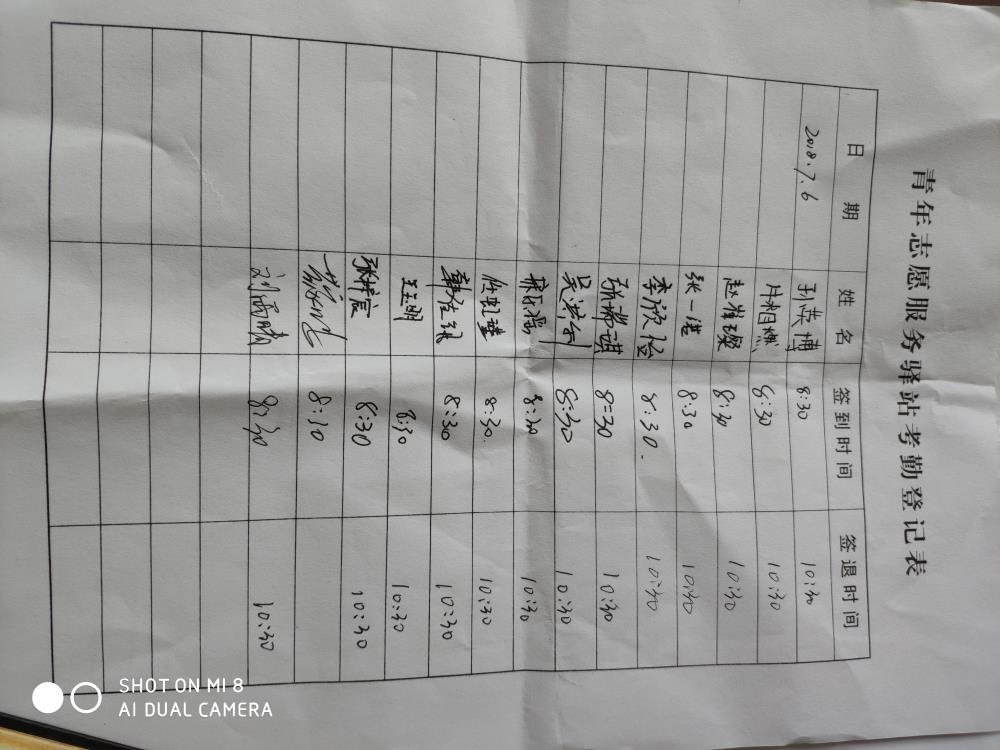 青年志愿服务驿站考勤登记表
日期 姓名 签到时间 签退时间
2018.7.6 孙英博 8:30 10:30
8:30 10:30
赵雅璨 8:30 10:30
张一浩 8:30 10:30
李欣 8:30. 10:30
张瑞祺 8:30 10:30
吴 8:30 10:30
8:30 10:30
任凯 8:30. 10:30
8:30 10:30
王玉明 8:30 10:30
张梓宸 8:30 10:30
8:30
刘雨晴 8:30 10:30
SHOT ON MI 8
AI DUAL CAMERA